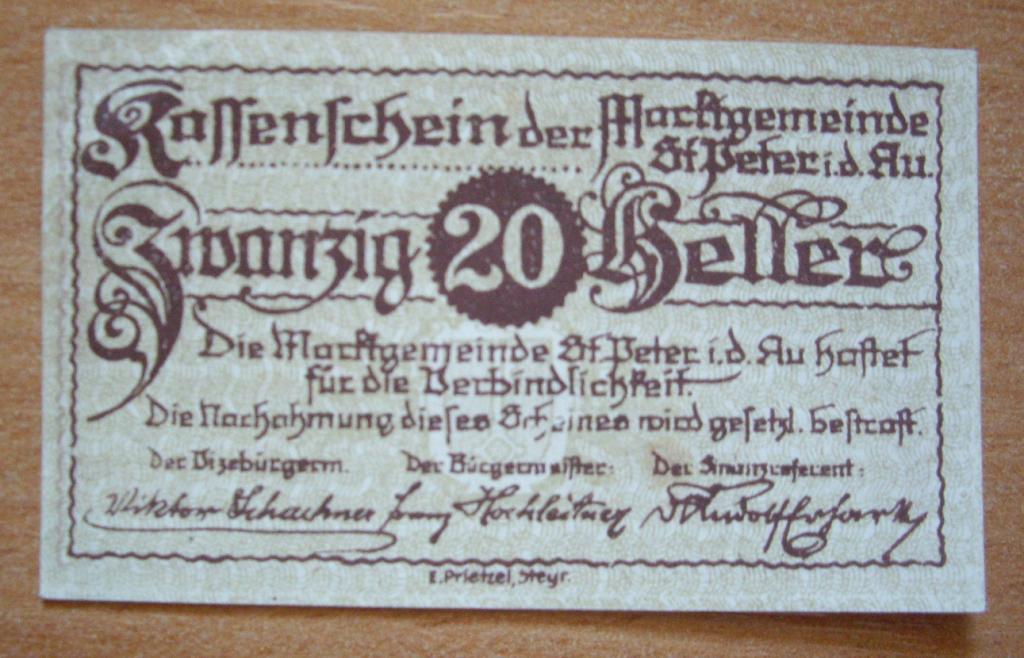 Kassenschein der Marktgemeinde
St. Peter i. d. Au.
Zwanzig 20 Heller
Die Marktgemeinde St. Peter i. d. Au haftet
für die Verbindlichkeit.
Die Nachahmung dieses Scheines wird gesetzl. bestraft.
Der Vizebürgerm. Der Bürgermeister: Der Finanzreferent:
Viktor Schachner Hochleitner Rudolf Erhart
E. Prietzel, Steyr.